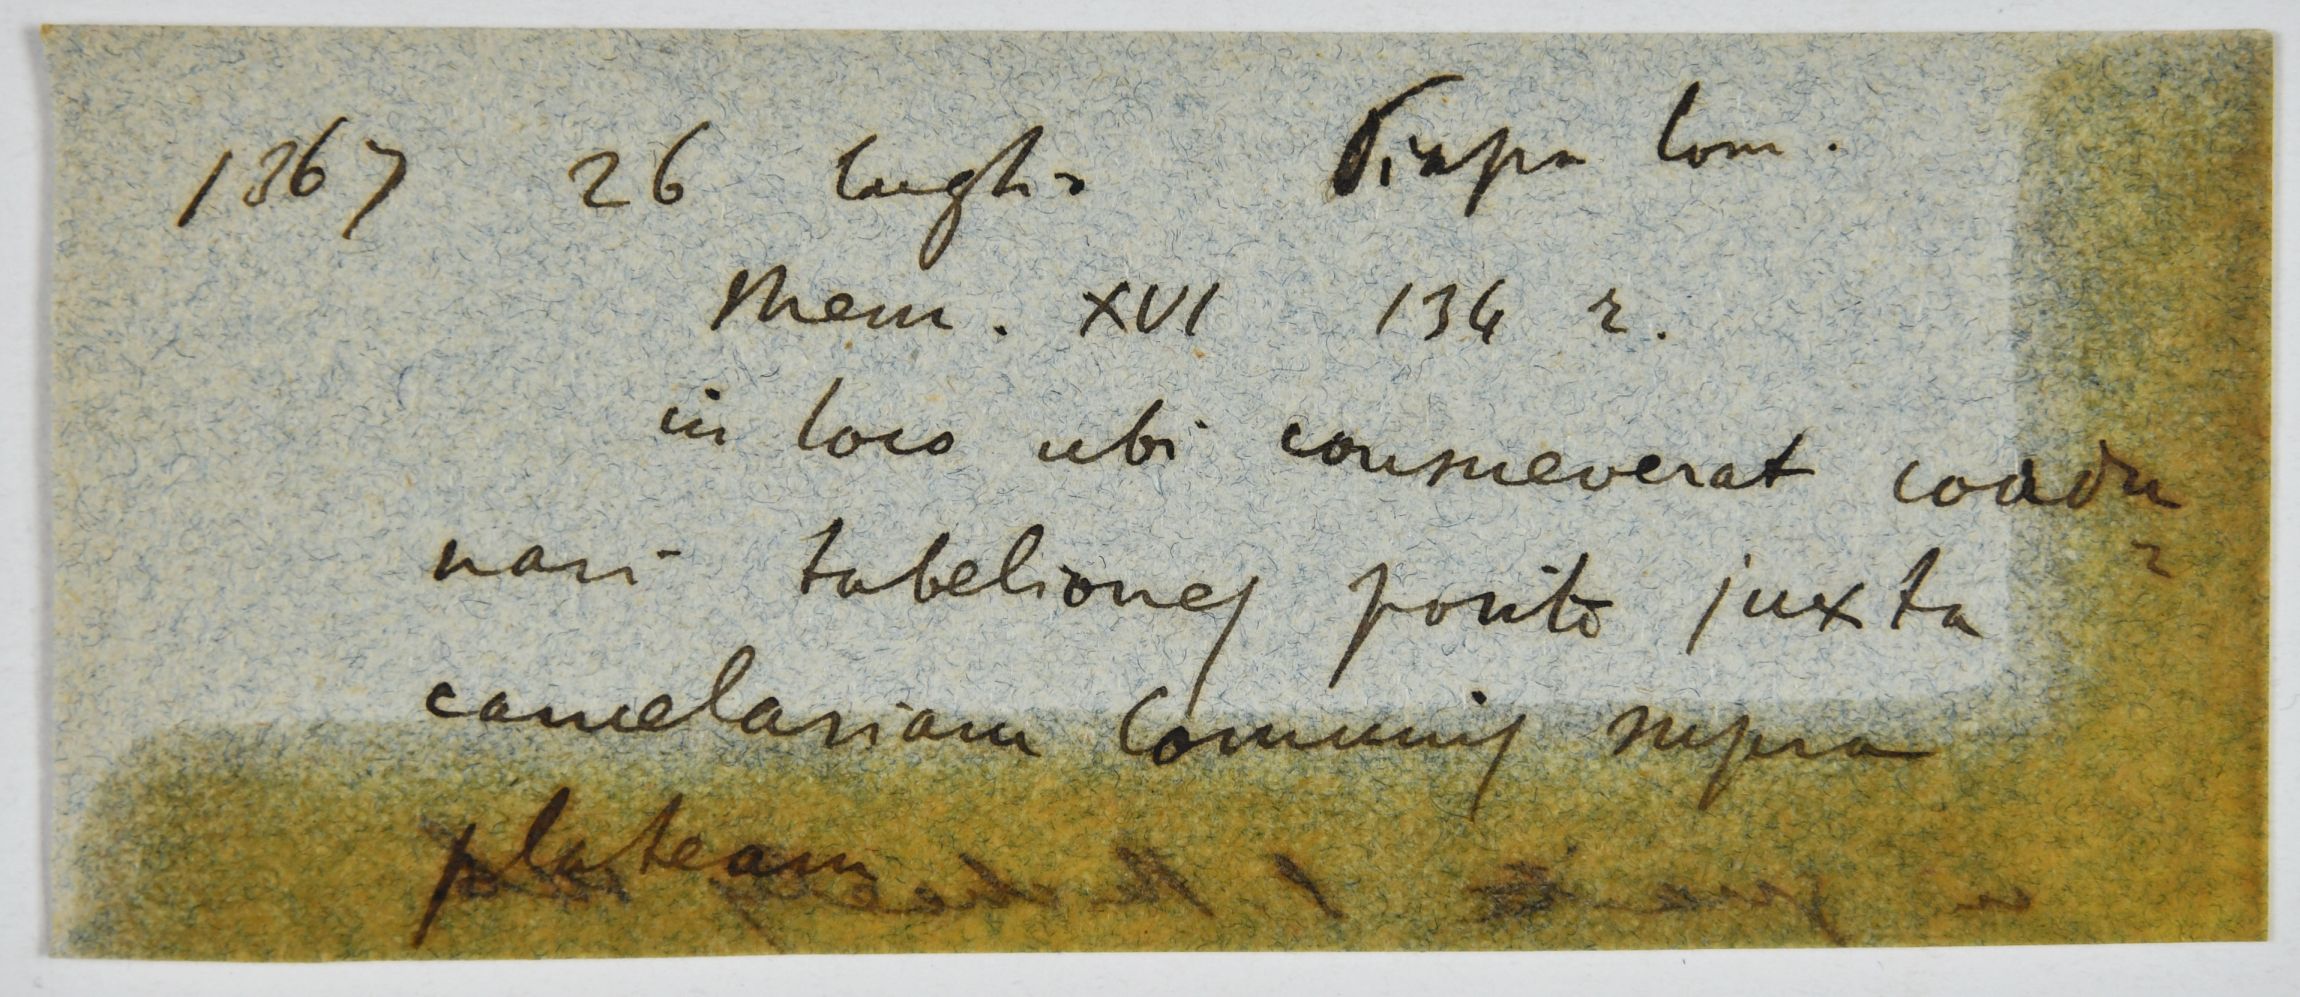 1367 26 luglio Piazza Com.
Mem. XVI 134 r.
in loco ubi consueverat coadu
nari tabeliones posito juxta
cancelariam Comunis supra
plateam